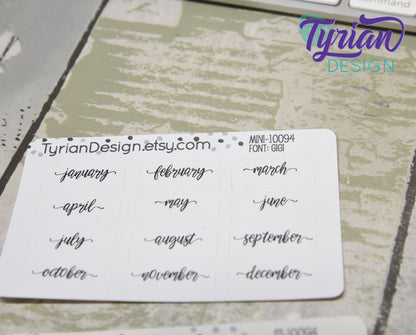 command
Tyrian
DESIGN
TyrianDesign.etsy.com
MINI-10094
FONT: GIGI
january february march
april may june
july august september
october november december